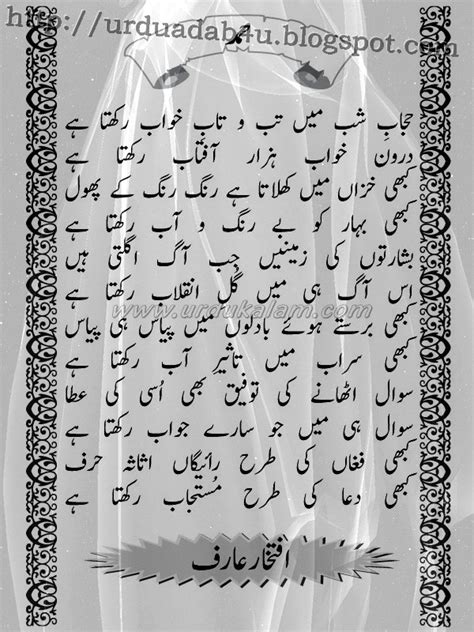 http://urduadab4u.blogspot.com
حمد
حجابِ شب میں تب و تابِ خواب رکھتا ہے
درون خواب ہزار آفتاب رکھتا ہے
کبھی خزاں میں کھلاتا ہے رنگ رنگ کے پھول
کبھی بہار کو بے رنگ و آب رکھتا ہے
بشارتوں کی زمینیں جب آگ اگلتی ہیں
اس آگ ہی میں گُلِ انقلاب رکھتا ہے
www.urdukalam.com
کبھی برستے ہوئے بادلوں میں پیاس ہی پیاس
کبھی سراب میں تاثیرِ آب رکھتا ہے
سوال اٹھانے کی توفیق بھی اُسی کی عطا
سوال ہی میں جو سارے جواب رکھتا ہے
کبھی فغاں کی طرح رائیگاں اثاثہ حرف
کبھی دعا کی طرح مُستجاب رکھتا ہے
افتخار عارف